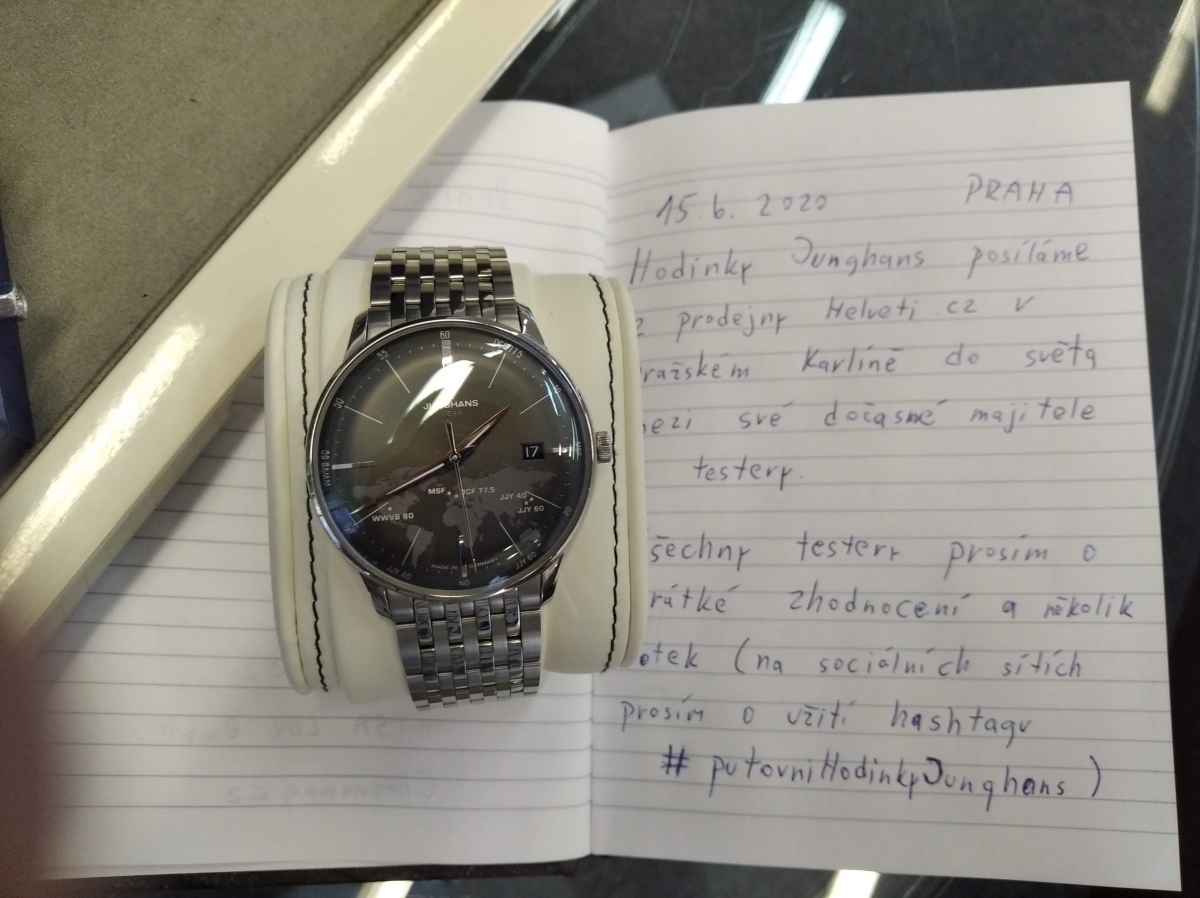 60
55
50
JUNGHANS
17
MSF
DCF 77,5
JJY 40
WWVB 60
JJY 60
MADE IN GERMANY
WWVB 60
JJY 40
JJY 60
15.6. 2020 PRAHA
Hodinky Junghans posíláme
z prodejny Helveti.cz v
ražském Karlíně do světa
ezi své dočasné majitele
testery.
šechny testery prosím o
rátké zhodnocení a několik
otek (na sociálních sítích
prosím o užití hashtagu
# putovniHodinkyJunghans )